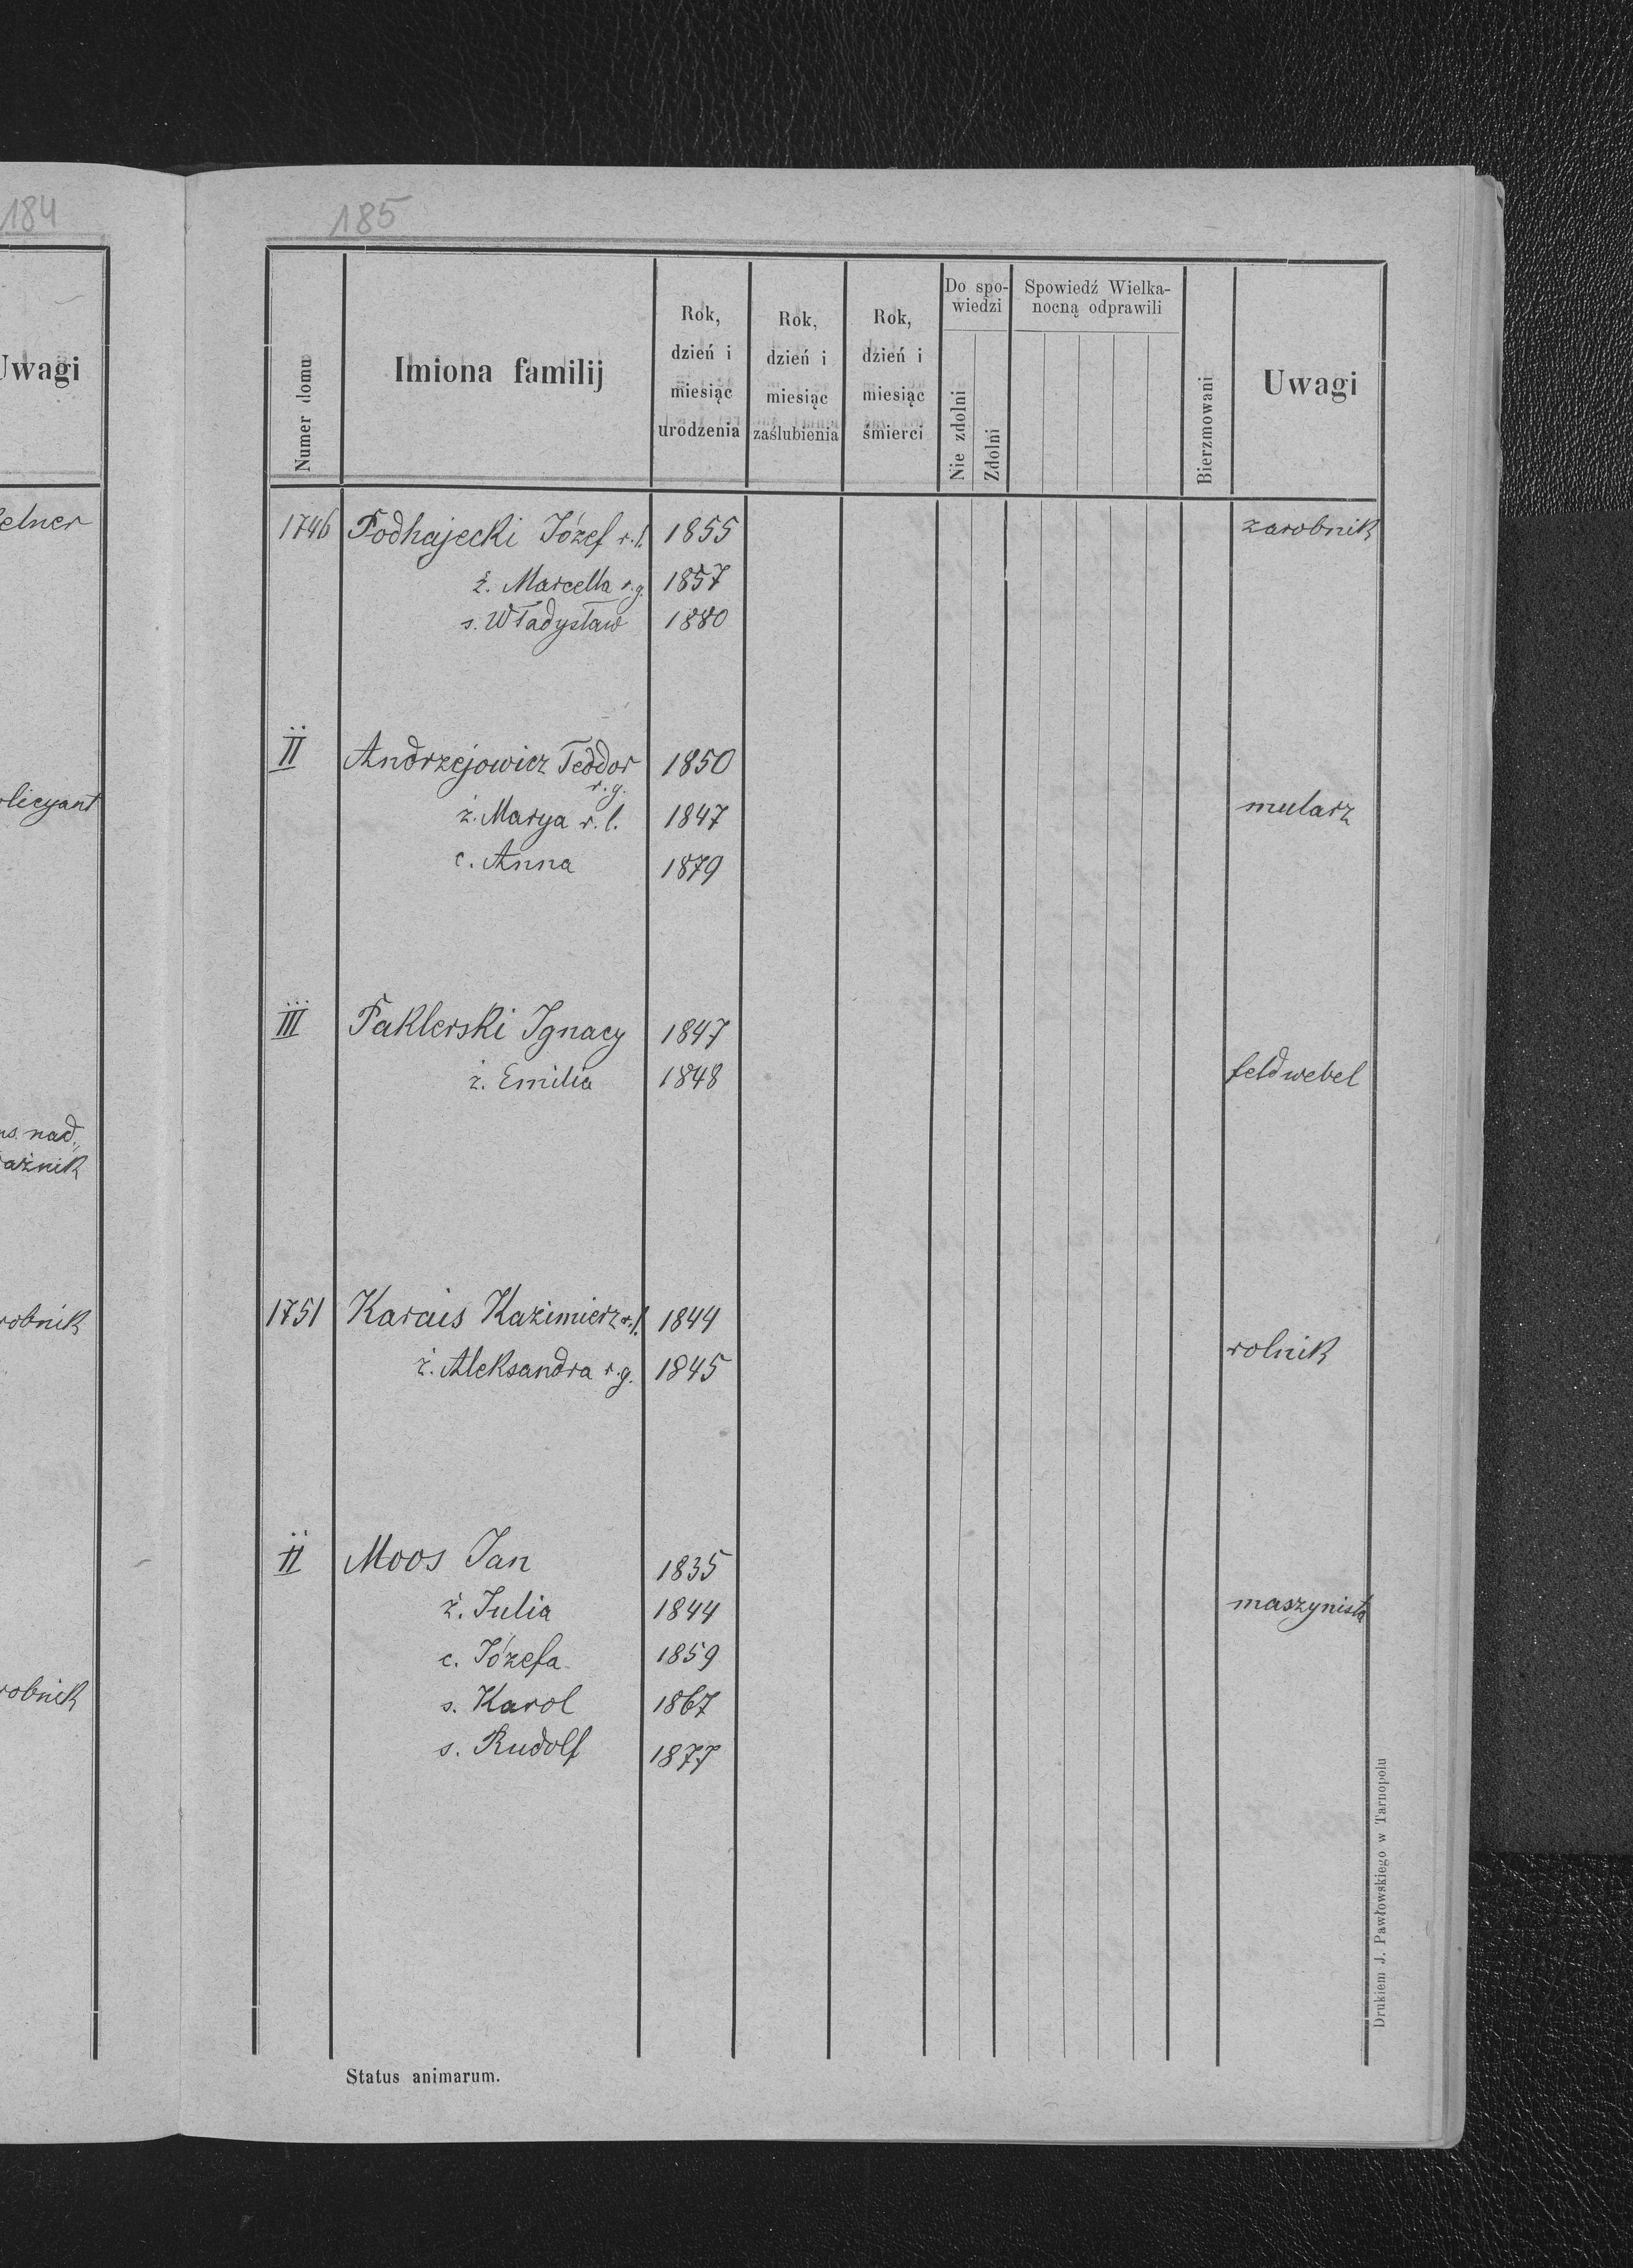 184
185
Uwagi
Numer domu
Imiona familij
Rok, dzień i miesiąc urodzenia
Rok, dzień i miesiąc zaślubienia
Rok, dzień i miesiąc śmierci
Do spo-
wiedzi
Nie zdolni
Zdolni
Spowiedź Wielka-
nocną odprawili
Bierzmowani
Uwagi
1746 Podhajecki Józef r.l. 1855 zarobnik
ż. Marcella r.g. 1857
s. Władysław 1880
II Andrzejowicz Teodor 1850
r.g.
ż. Marya r.l. 1847 mularz
c. Anna 1879
III Faklerski Ignacy 1847
ż. Emilia 1848 feldwebel
nad
1751 Karais Kazimierz r.l. 1844
ż. Aleksandra r.g. 1845 rolnik
II Moos Jan 1835
ż. Julia 1844 maszynista
c. Józefa 1859
s. Karol 1867
s. Rudolf 1877
Status animarum.
Drukiem J. Pawłowskiego w Tarnopolu